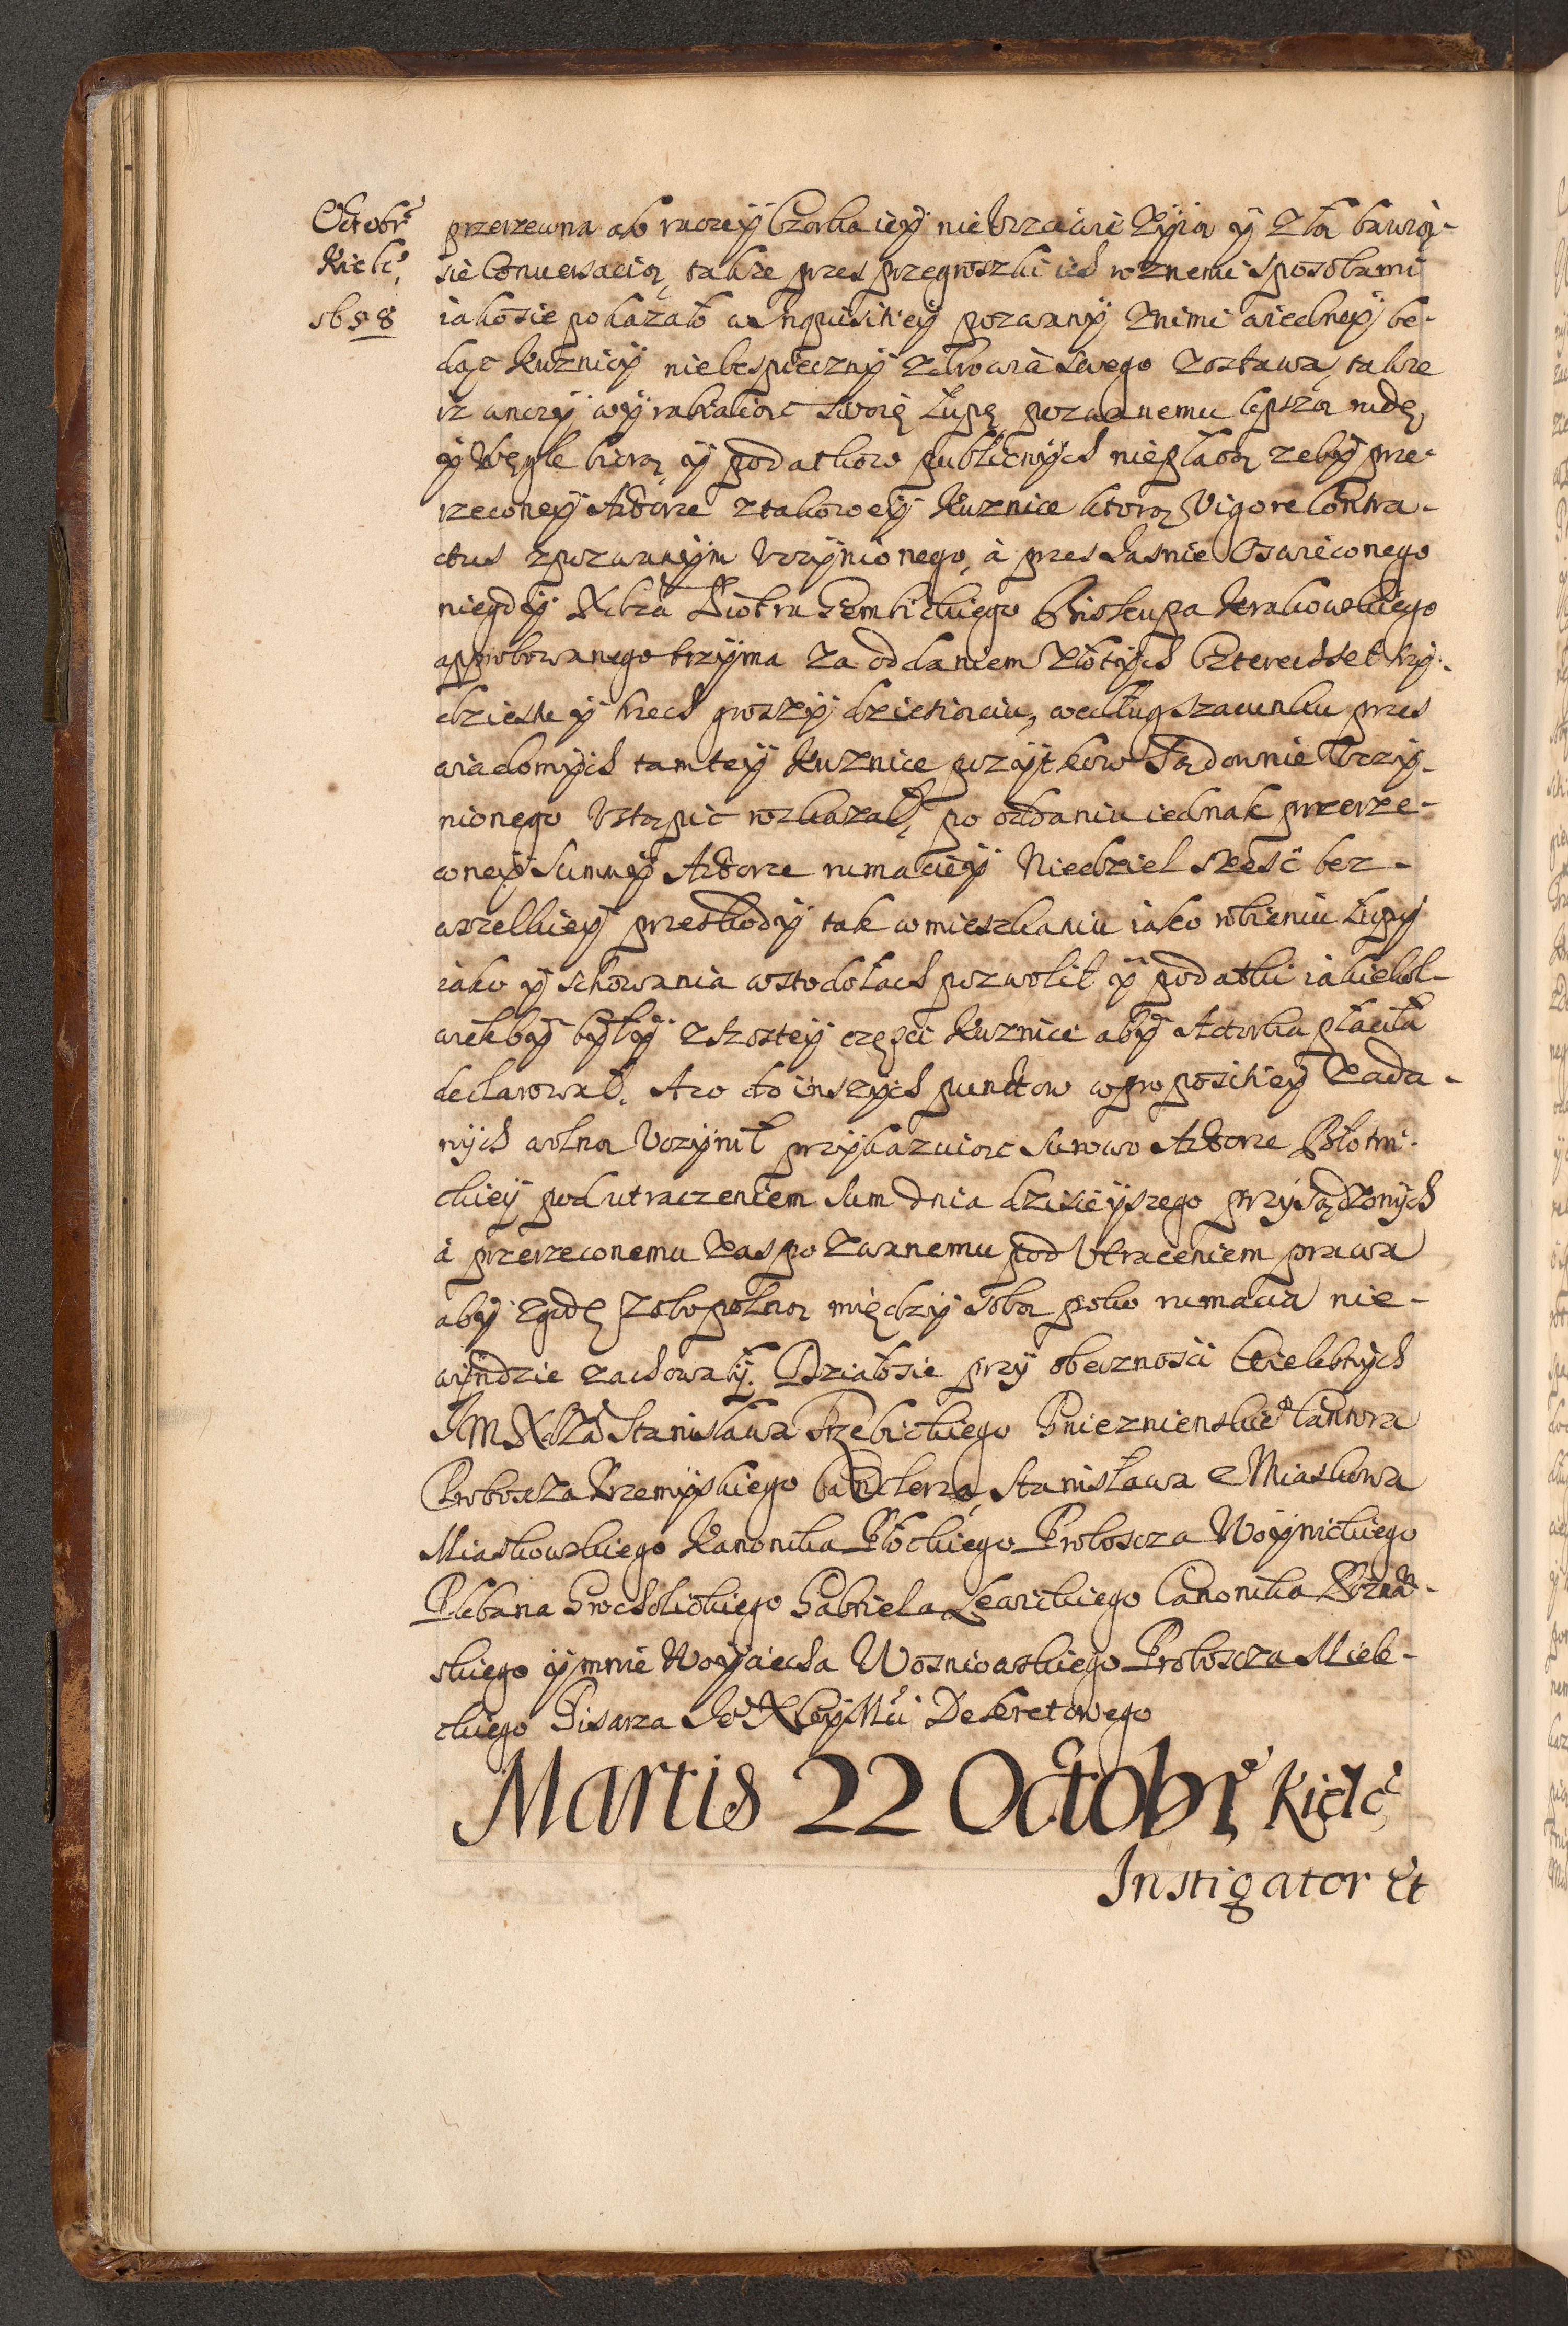 Octobr
Kielc
1658
przerzewna abo raczey Czorka iey nie Vrzciwie Zyią y Zlą bawią-
sie Conuersacią, takze przes przegroszki ich roznemi sposobami
iakosie pokazało w Inquisitiey pozwany Znimi wiedney be-
dąc kuznicy niebespieczny zdrowia swego Zostawa, takze
iz wnocy wyrabiaiąc swoię Łupę pozwanemu lepszą rudę,
y Węgle biorą y podatkow publicnych niepłacą zeby prze-
rzeconey Aktorce ztakowey Kuznice ktorą Vigore Contra-
ctus zpozwanym Vczynionego, à przes Jasnie Oswieconego
niegdy Xcbza Piotra Gembickiego Biskupa Krakowskiego
approbowanego trzyma Za oddaniem Złotych Czterechset trzy-
dziestu y trzech groszy dziesiąciu, według szacunku przes
wiadomych tamtey Kuznice pozytkow Sądownie Vczy-
nionego Vstąpic rozkazał, po oddaniu iednak przerze-
coney Summy Aktorce rumaciey Niedziel szesc bez-
wszelkiey przeskody tak w mieszkaniu iako robieniu Łupy
iako y schowania wstodołach pozwolił y podatki iakiekol-
wiekby były zszostey częsci Kuznice aby Actorka płaciła
declarował. A co do inszych punctow w propositiey Zada-
nych wolną Vczynił przykazuiąc Surowo Aktorce Błotni-
ckiey pod utraczeniem sum dnia dzisieyszego przysądzonych
à przerzeconemu Zas pozwanemu pod Vtraceniem prawa
aby zgodę Zobopolną między sobą poko rumacia nie-
wyndzie zachowały. Działosie przy obecznosci Wielebnych
JM Xdza Stanisława Trzebickiego Gnieznienskie° Cantora
Probosza Przemyskiego Canclerza, Stanisława z Miaskowa
Miaskowskiego Kanonika Płockiego Proboscza Woynickiego
Plebana Grocholickiego Gabriela Lewickiego Canonika Pozna-
skiego y mnie Woyciecha Wosniowskiego Proboscza Miele-
ckiego Pisarza Je° X Cey Mci Dekretowego
Martis 22 Octobr Kielc
Instigator Et